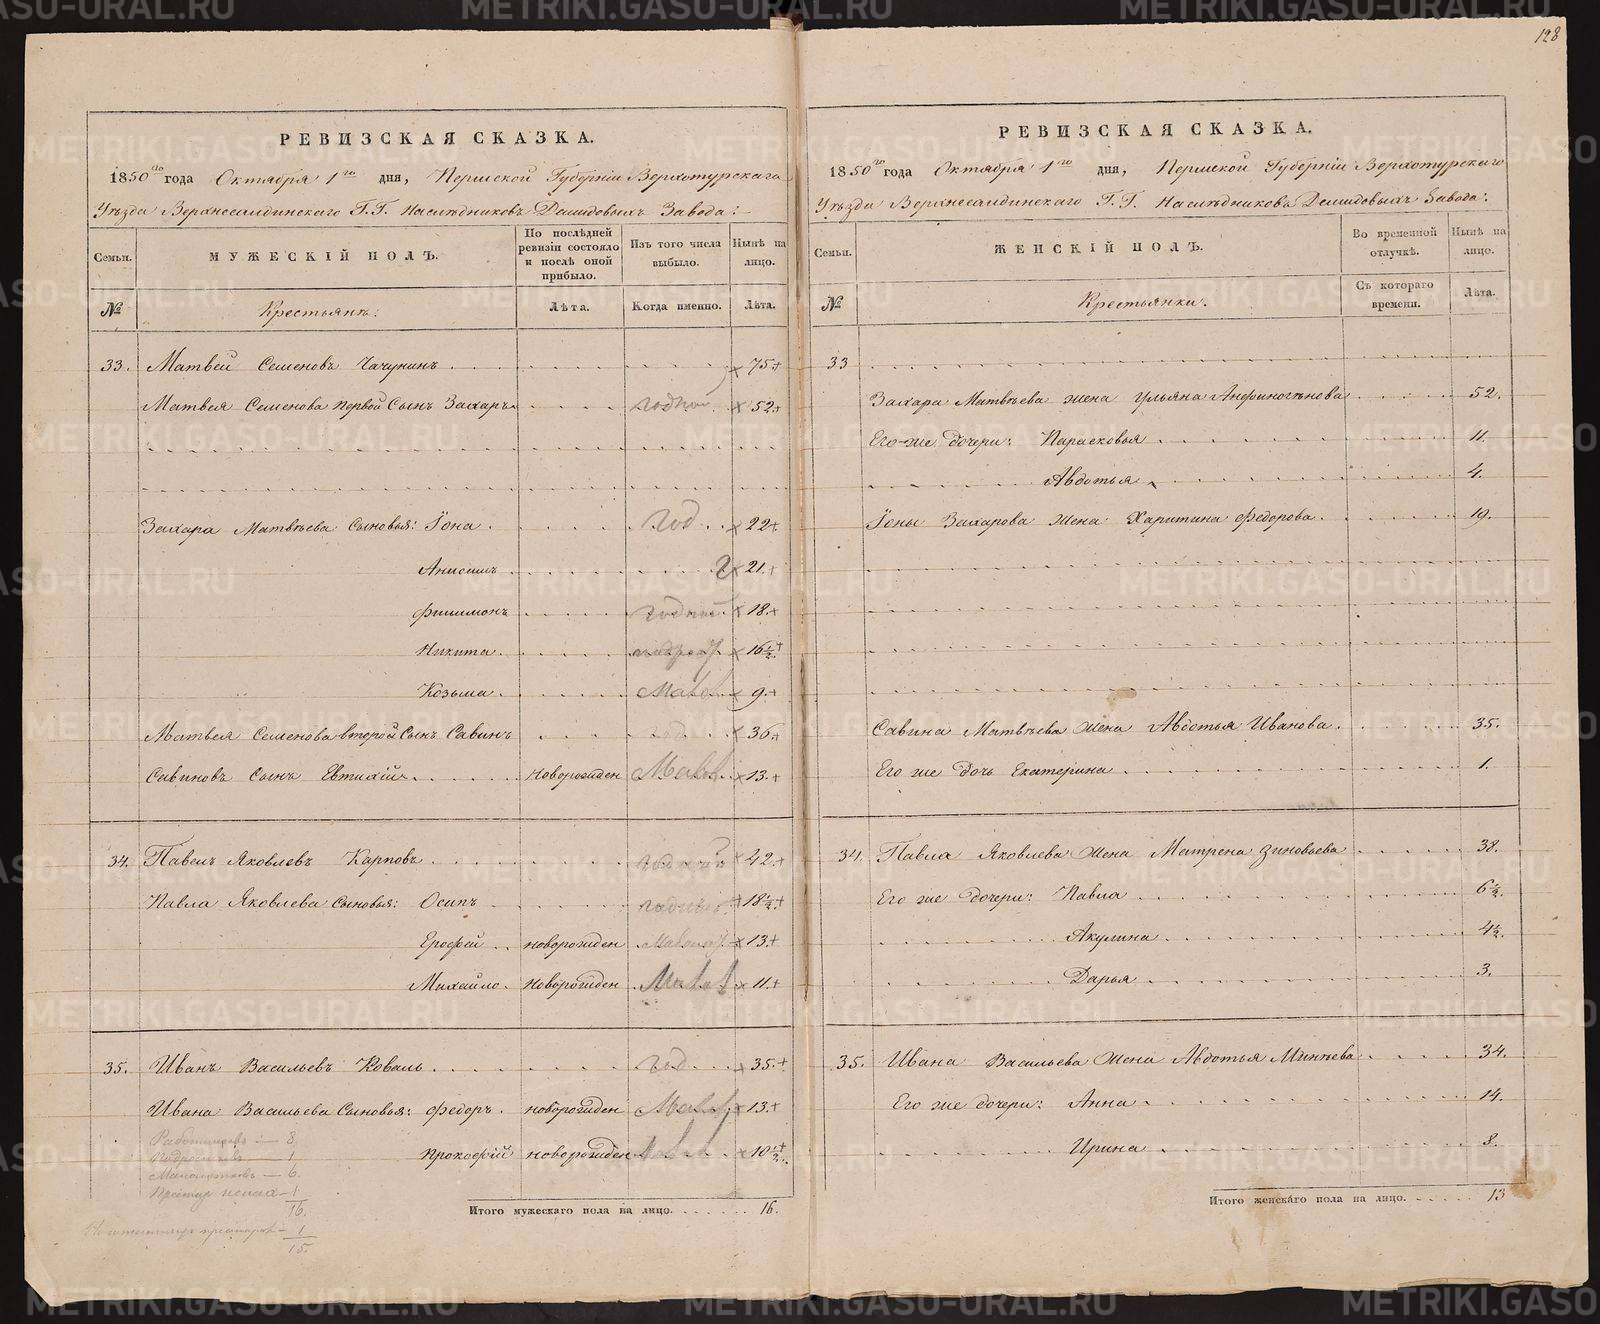 128
РЕВИЗСКАЯ СКАЗКА.
1850го года Октября 1го дня, Пермской Губерніи Верхотурскаго
Уѣзда Верхнесалдинскаго Г.Г. Наслѣдниковъ Демидовыхъ Завода:
Семьи. МУЖЕСКІЙ ПОЛЪ. По послѣдней ревизіи состояло и послѣ оной прибыло. Изъ того числа выбыло. Нынѣ на лицо.
№ Крестьянъ: Лѣта. Когда именно. Лѣта.
33. Матвей Семеновъ Чачунинъ 75
Матвея Семенова первой Сынъ Захаръ годной 52
Захара Матвѣева Сыновья: Іона год 22
Анисимъ г 21
Филимонъ годный 18
Никита 16½
Козьма Малол 9
Матвея Семенова второй Сынъ Савинъ год 36
Савиновъ Сынъ Евтихій новорожден Малол 13
34. Павелъ Яковлевъ Карповъ годный 42
Павла Яковлева Сыновья: Осипъ годный 18½
Ерофей новорожден 13
Михайло новорожден Малол 11
35. Иванъ Васильевъ Коваль год 35
Ивана Васильева Сыновья: Федоръ новорожден Малол 13
Прокофій новорожден Малол 10½
Работниковъ — 8
Подростковъ — 1
Малолѣтковъ — 6
1
16.
1
15.
Итого мужескаго пола на лицо. 16.
РЕВИЗСКАЯ СКАЗКА.
1850го года Октября 1го дня, Пермской Губерніи Верхотурскаго
Уѣзда Верхнесалдинскаго Г.Г. Наслѣдниковъ Демидовыхъ Завода:
Семьи. ЖЕНСКІЙ ПОЛЪ. Во временной отлучкѣ. Нынѣ на лицо.
№ Крестьянки. Съ котораго времени. Лѣта.
33
Захара Матвѣева жена Ульяна Анфиногѣнова 52.
Его-же дочери: Парасковья 11.
Авдотья 4.
Іоны Захарова жена Харитина Федорова 19.
Савина Матвѣева жена Авдотья Иванова 35.
Его же дочь Екатерина 1.
34. Павла Яковлева жена Матрена Зиновьева 38.
Его же дочери: Павла 6½.
Акулина 4½.
Дарья 3.
35. Ивана Васильева жена Авдотья Минѣева 34.
Его же дочери: Анна 14.
Ирина 8.
Итого женскаго пола на лицо. 13
METRIKI.GASO-URAL.RU